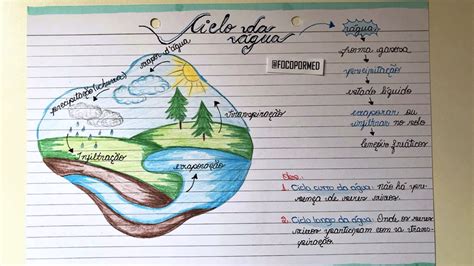 Ciclo da
água
@FOCOPORMED
vapor d'água
precipitação (chuva)
transpiração
Infiltração
evaporação
água
forma gasosa
precipitação
estado líquido
evaporar ou
infiltrar no solo
lençóis freáticos
Obs:
1. Ciclo curto da água: não há pre-
sença de seres vivos
2. Ciclo longo da água: Onde os seres
vivos participam com a trans-
piração.